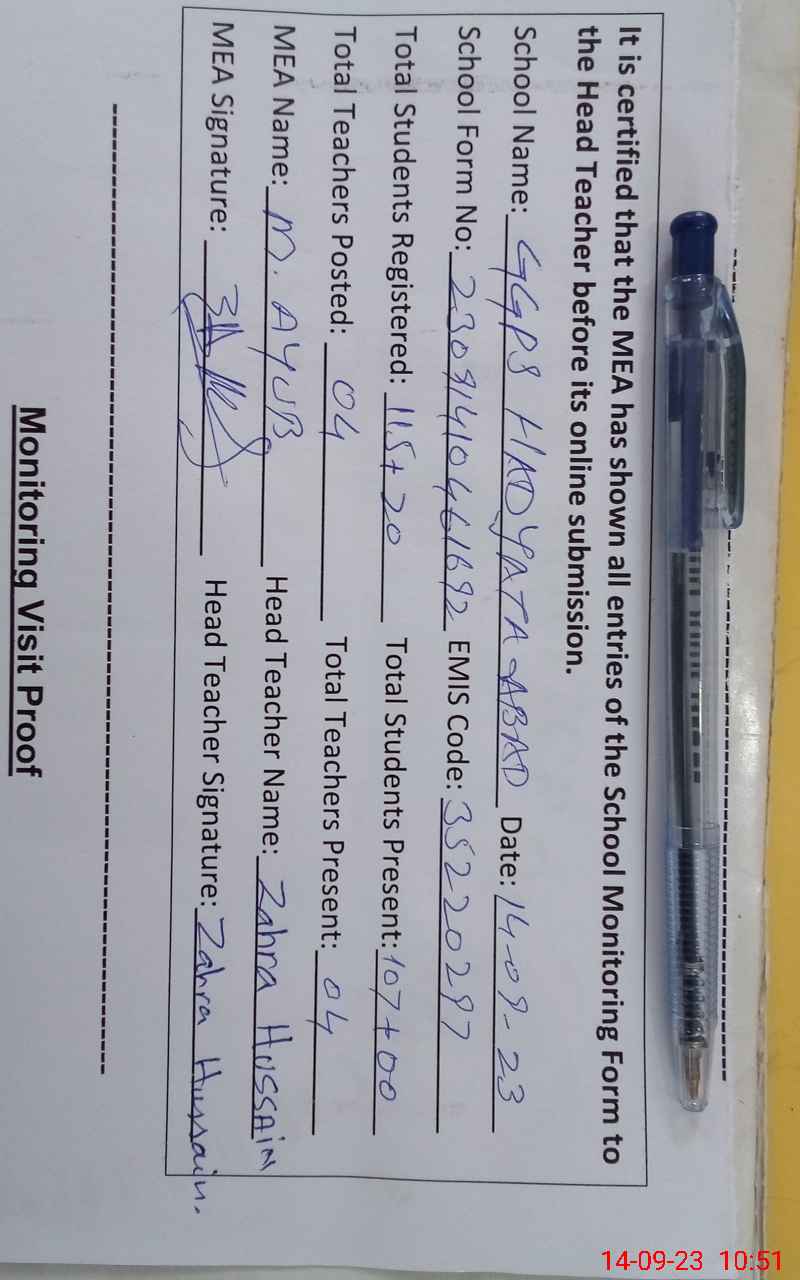 It is certified that the MEA has shown all entries of the School Monitoring Form to
the Head Teacher before its online submission.
School Name: GGPS HADYATA ABAD Date: 14-09-23
School Form No: EMIS Code: 35220297
Total Students Registered: 115+20 Total Students Present: 107+00
Total Teachers Posted: 04 Total Teachers Present: 04
MEA Name: M. AYUB Head Teacher Name: Zahra HUSSAiN
MEA Signature: Head Teacher Signature: Zahra Hussain.
Monitoring Visit Proof
14-09-23 10:51